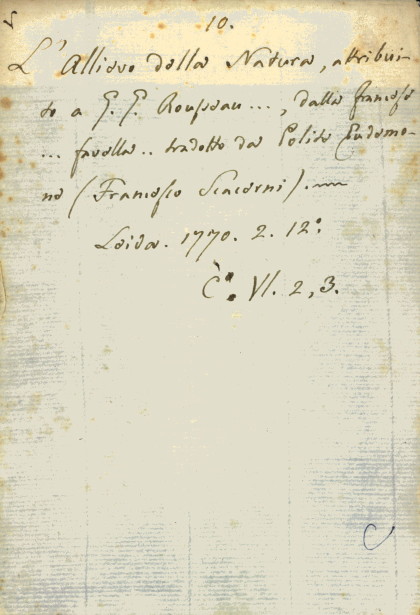 10.
L'Allievo della Natura, attribui-
to a G. G. Rousseau ..., dalla francese
... favella .. tradotto da Polite Eudemo-
no (Francesco Sciacorni).
Leida. 1770. 2. 12.º
C. VI. 2, 3.